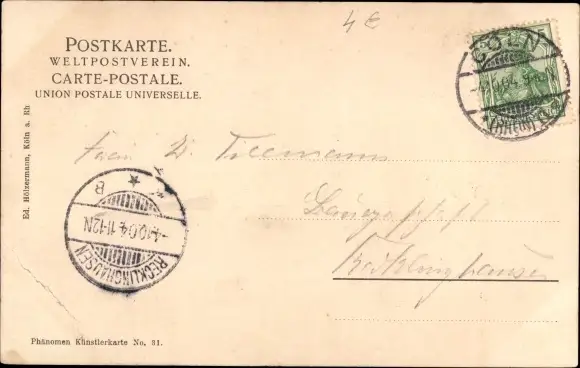 4 €
POSTKARTE.
WELTPOSTVEREIN.
CARTE-POSTALE.
UNION POSTALE UNIVERSELLE.
Ed. Hölzermann, Köln a. Rh
CÖLN
(RHEIN)
Tillmann
Recklinghausen
RECKLINGHAUSEN
-4.10.04.11-12N
* B
Phänomen Künstlerkarte No. 31.